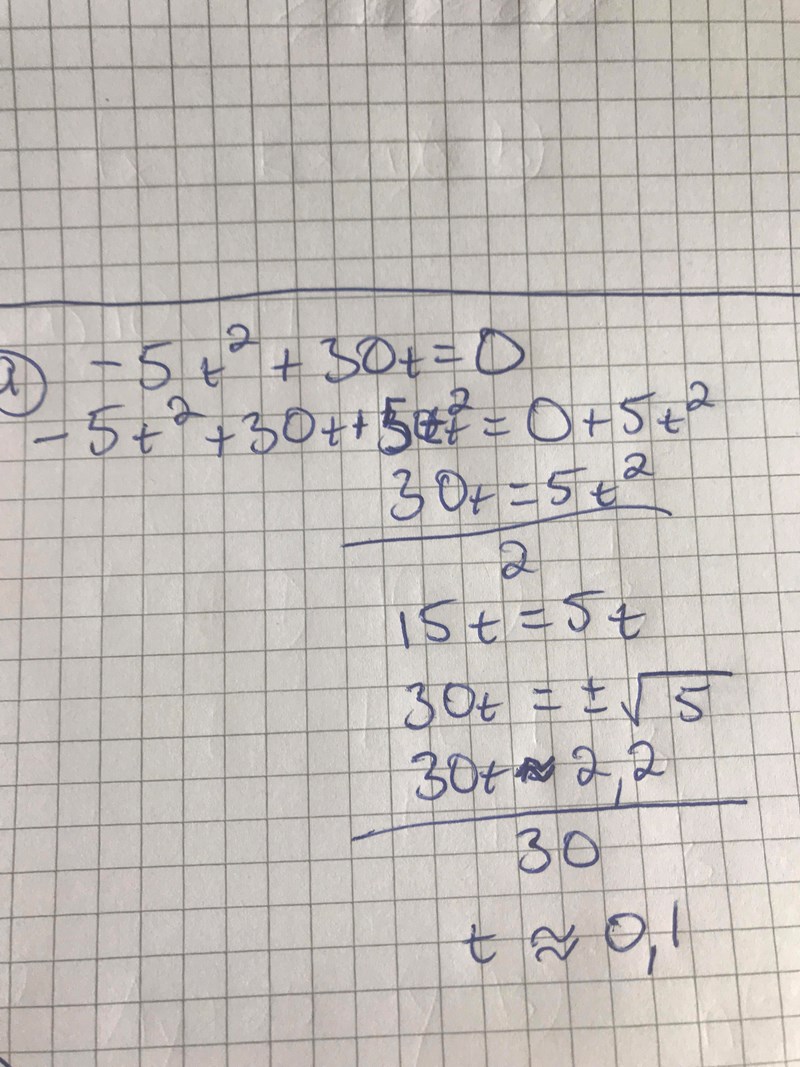 a) -5t² + 30t = 0
-5t² + 30t + 5t² = 0 + 5t²
30t = 5t²
2
15t = 5t
30t = ±√5
30t ≈ 2,2
30
t ≈ 0,1